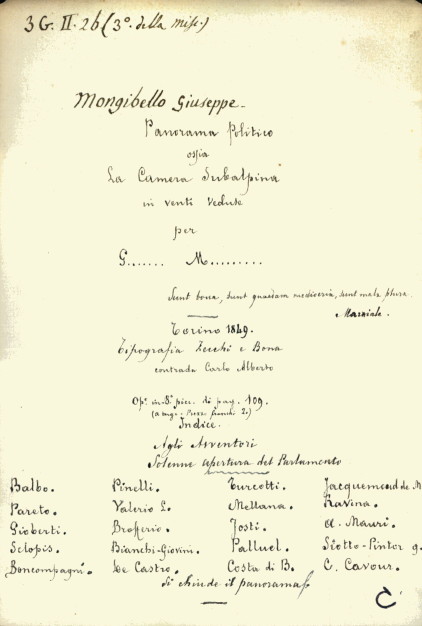 3 G. II. 2b (3º. della misc.)
Mongibello Giuseppe.
Panorama Politico
ossia
La Camera Subalpina
in venti vedute
per
G....... M.........
Sunt bona, sunt quaedam mediocria, sunt mala plura.
Marziale.
Torino 1849.
Tipografia Zecchi e Bona
contrada Carlo Alberto
Op. in-8º picc. di pag. 109.
Indice.
Agli Avventori
Solenne apertura del Parlamento
Balbo. Pinelli. Turcotti. Jacquemoud de M
Pareto. Valerio L. Mellana. Ravina.
Gioberti. Brofferio. Josti. A. Mauri.
Sclopis. Bianchi-Giovini. Palluel. Siotto-Pintor g.
Boncompagni. De Castro. Costa di B. C. Cavour.
Si chiude il panorama
C